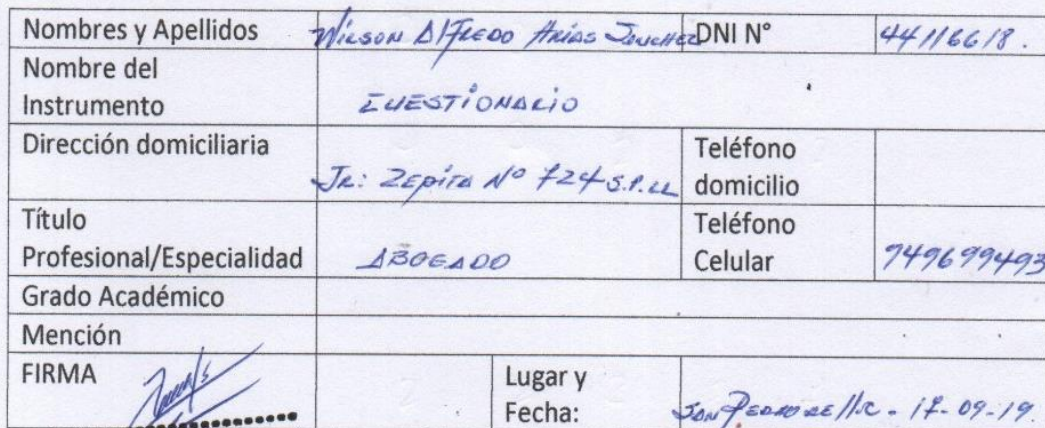 Nombres y Apellidos Wilson Alfredo Arias Sanchez DNI N° 44116618.
Nombre del
Instrumento CUESTIONARIO
Dirección domiciliaria Teléfono
Jr: Zepita N° 724 S.P.LL domicilio
Título Teléfono
Profesional/Especialidad ABOGADO Celular 949699493
Grado Académico
Mención
FIRMA Lugar y
Fecha: San Pedro de - 17-09-19.